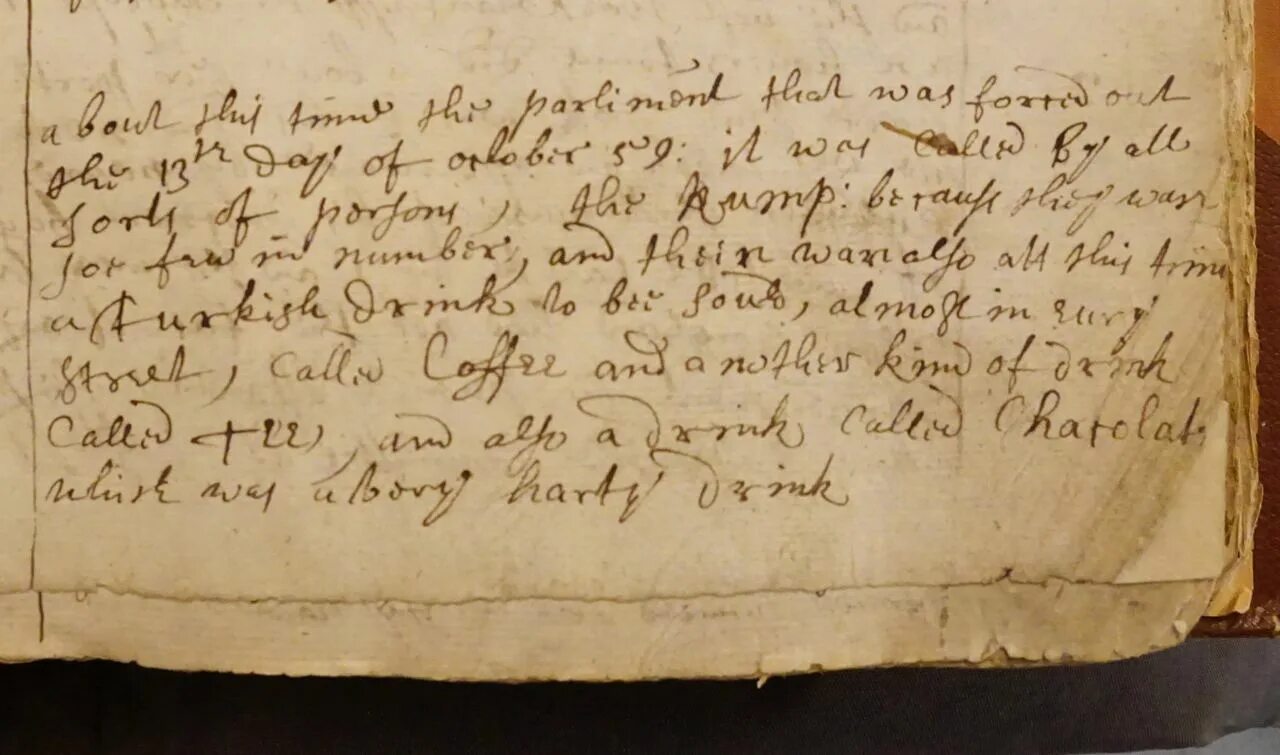 about this time the parliment that was forced out
the 13th day of october 59: it was Called By all
sorts of persons, the Rump: because they ware
soe few in number, and theire ware also att this time
a turkish drink to bee sould, almost in every
street, Called Coffee and another kind of drink
Called tee, and also a drink Called Chacolate
which was a very harty drink